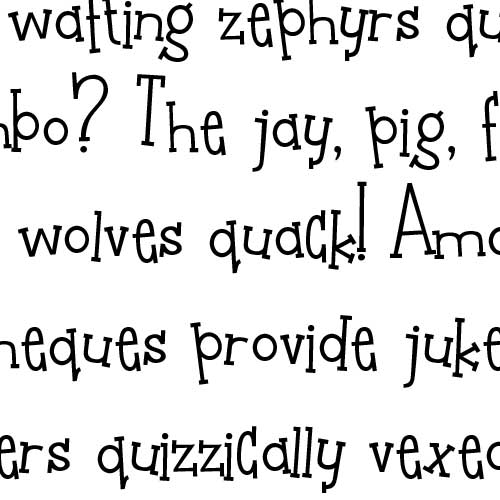 wafting zephyrs qu
mbo? The jay, pig, f
wolves quack! Ama
heques provide juke
ers quizzically vexed